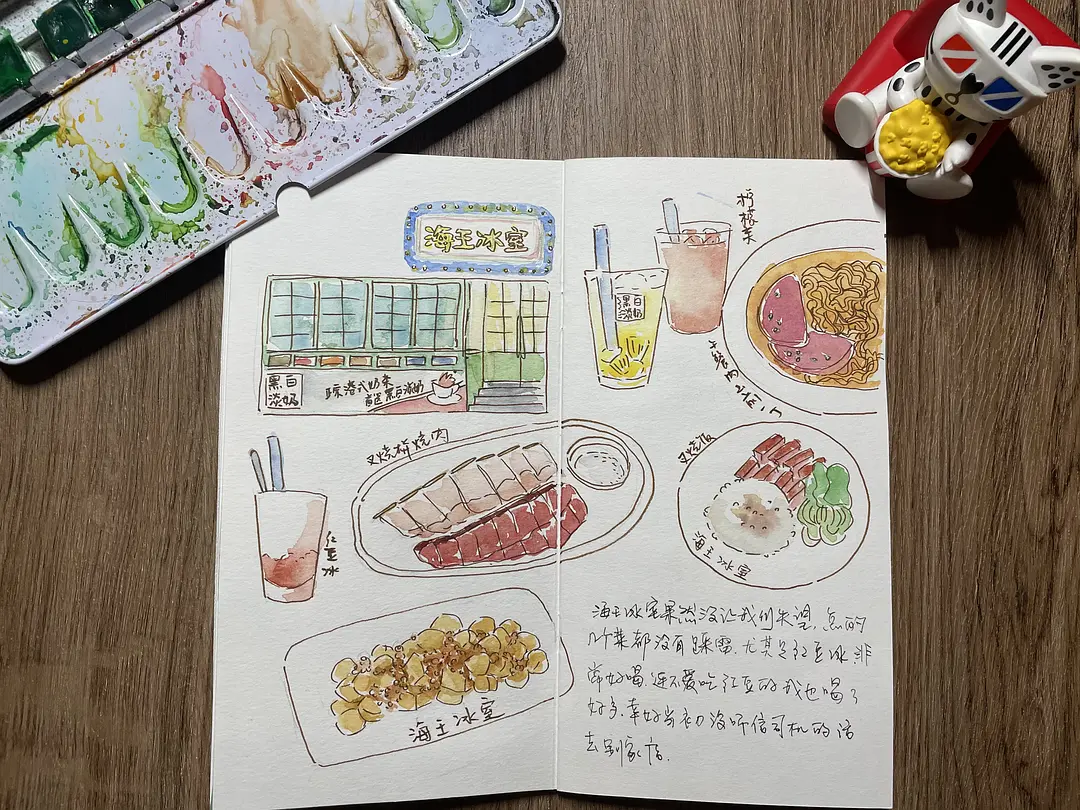 海王冰室
黑白
淡奶
踩港式奶茶
首选黑白淡奶
叉烧拼烧肉
红豆冰
海王冰室
柠檬茶
黑白
淡奶
叉烧饭
海王冰室
海王冰室果然没让我们失望,点的
几个菜都没有踩雷.尤其是红豆冰非
常好喝.连不爱吃红豆的我也喝了
好多.幸好当初没听信司机的话
去别家店.